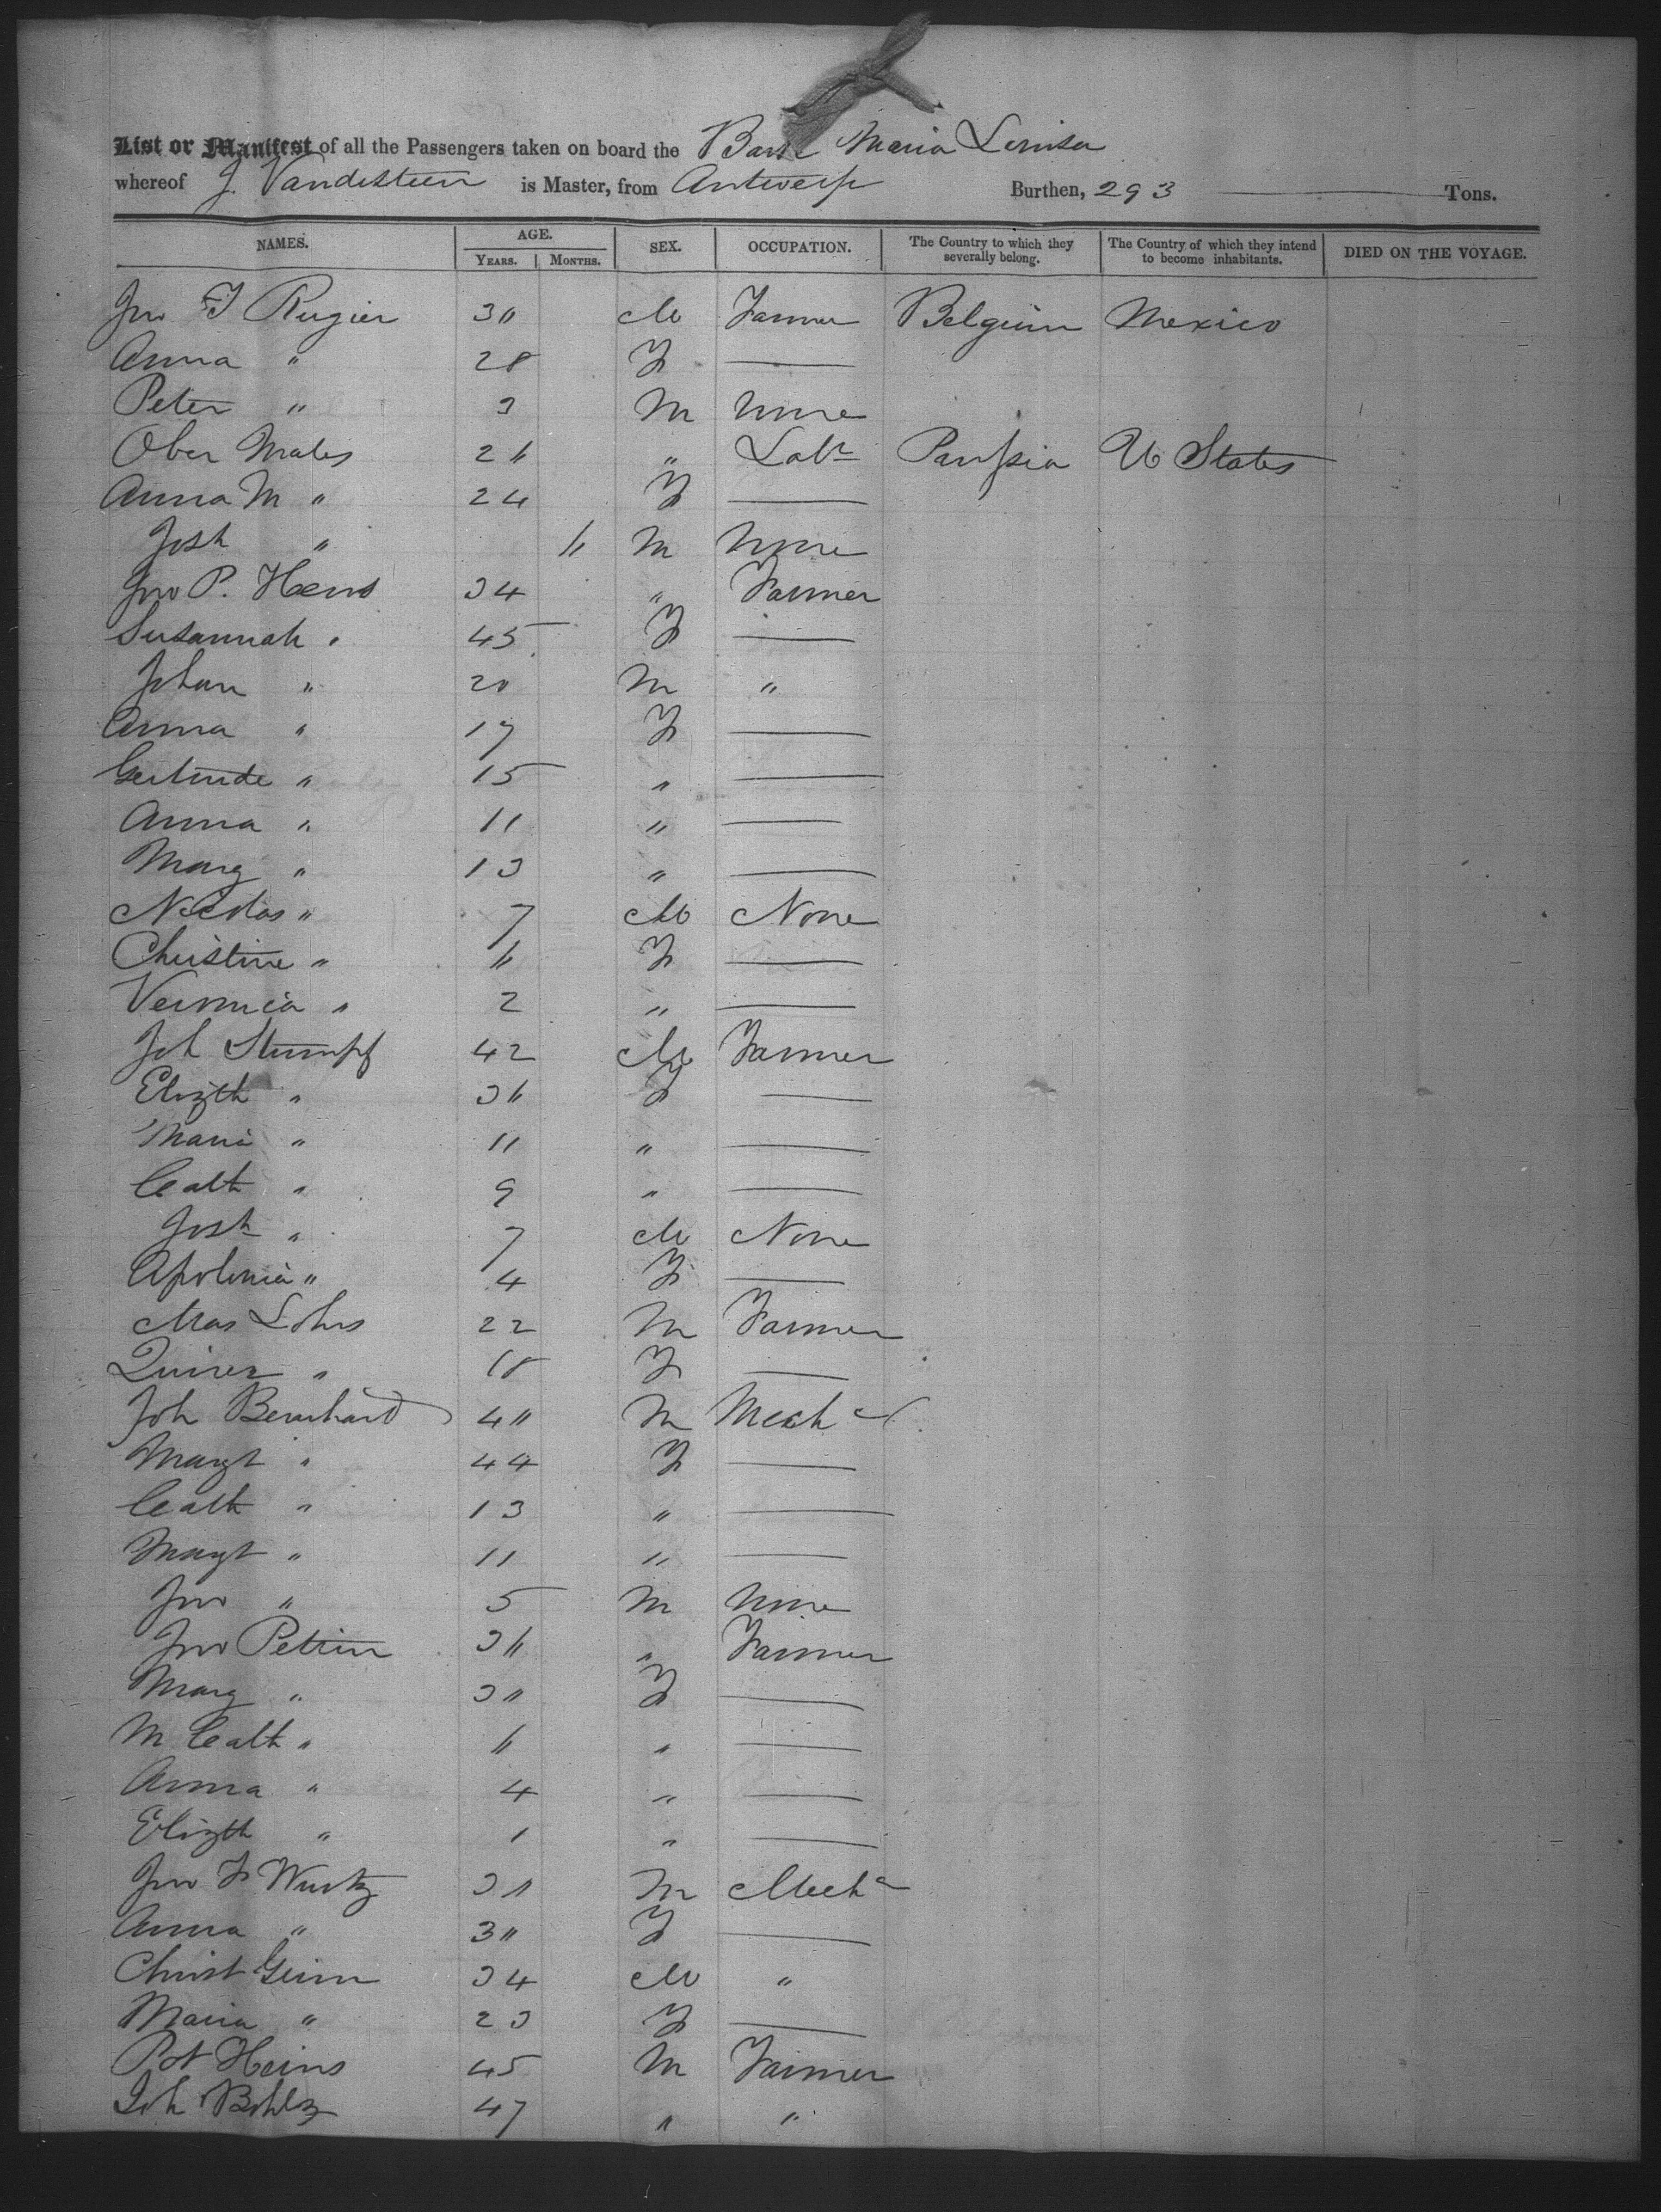 List or Manifest of all the Passengers taken on board the Bark Maria Louisa
whereof J. Vandesteen is Master, from Antwerp Burthen, 293 Tons.
NAMES. AGE. SEX. OCCUPATION. The Country to which they severally belong. The Country of which they intend to become inhabitants. DIED ON THE VOYAGE.
YEARS. MONTHS.
Jno F Rugier 30 M Farmer Belgium Mexico
Anna " 28 F —
Peter " 3 M None
Ober Males 26 " Labr Prussia U States
Anna M " 24 F —
Josh " 6 M None
Jno P. Heins 34 " Farmer
Susannah " 45 F —
Johan " 20 M "
Anna " 17 F —
Gertrude " 15 " —
Anna " 11 " —
Marg " 13 " —
Nicolas " 7 M None
Christine " 6 F —
Veronica " 2 " —
Joh Stumpf 42 M Farmer
Elizth " 36 F —
Maria " 11 " —
Cath " 9 " —
Josh " 7 M None
Apolonia " 4 F —
Mas Lohrs 22 M Farmer
" 18 F —
Joh Bernhard 40 M Mech
Margt " 44 F —
Cath " 13 " —
Margt " 11 " —
Jno " 5 M None
Jno Pettin 36 " Farmer
Marg " 30 F —
M Cath " 6 " —
Anna " 4 " —
Elizth " 1 " —
Jno F Wurtz 31 M Mech
Anna " 30 F —
Christ Grim 34 M "
Maria " 23 F —
Pet Heins 45 M Farmer
Joh Bohlz 47 " "